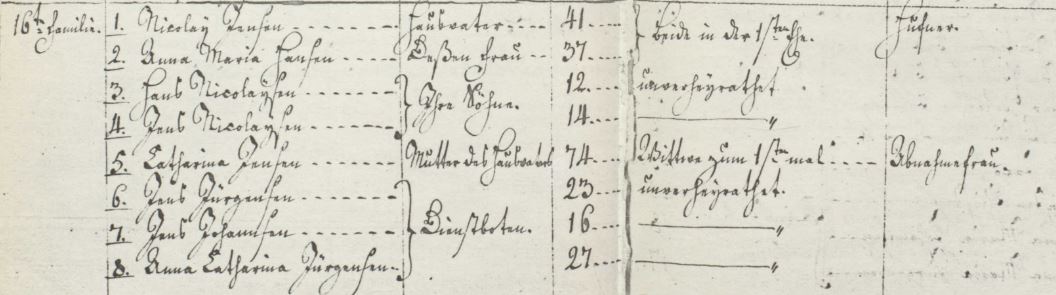 16te Familie. 1. Nicolay Jensen - - - - Hausvater - - - - 41 - - - - } beide in der 1sten Ehe. Hufner.
2. Anna Maria Hansen - - - - - Deßen Frau - - 37 - - - -
3. Hans Nicolaysen - - - - - - } Ihre Söhne. 12. - - - unverheyrathet
4. Jens Nicolaysen - - - - - - 14 - - - - ———„
5. Catharina Jensen - - - - - - Mutter des Hausvaters 74 - - - - Wittwe zum 1sten mal - - - - Abnahmefrau
6. Jens Jürgensen - - - - - - } Dienstboten. 23 - - - - unverheyrathet.
7. Jens Johannsen - - - - - - 16 - - - - ———„
8. Anna Catharina Jürgensen - - 27 - - - - ———„